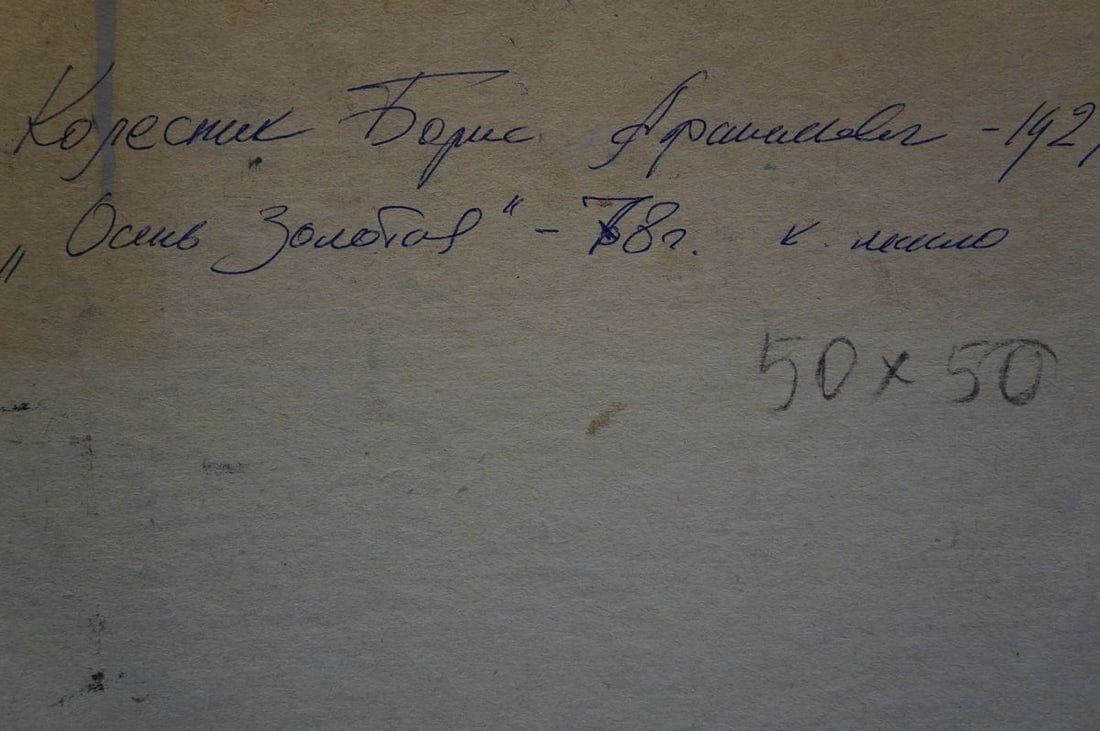 Колесник Борис Афанасьевич - 192
„Осень Золотая“ - 78г. к. масло
50 x 50